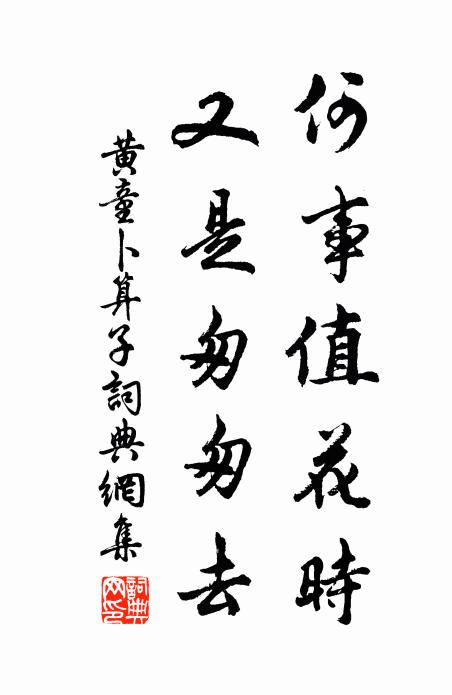 何事值花時
又是匆匆去
黃童卜算子詞典網集
詞典網印